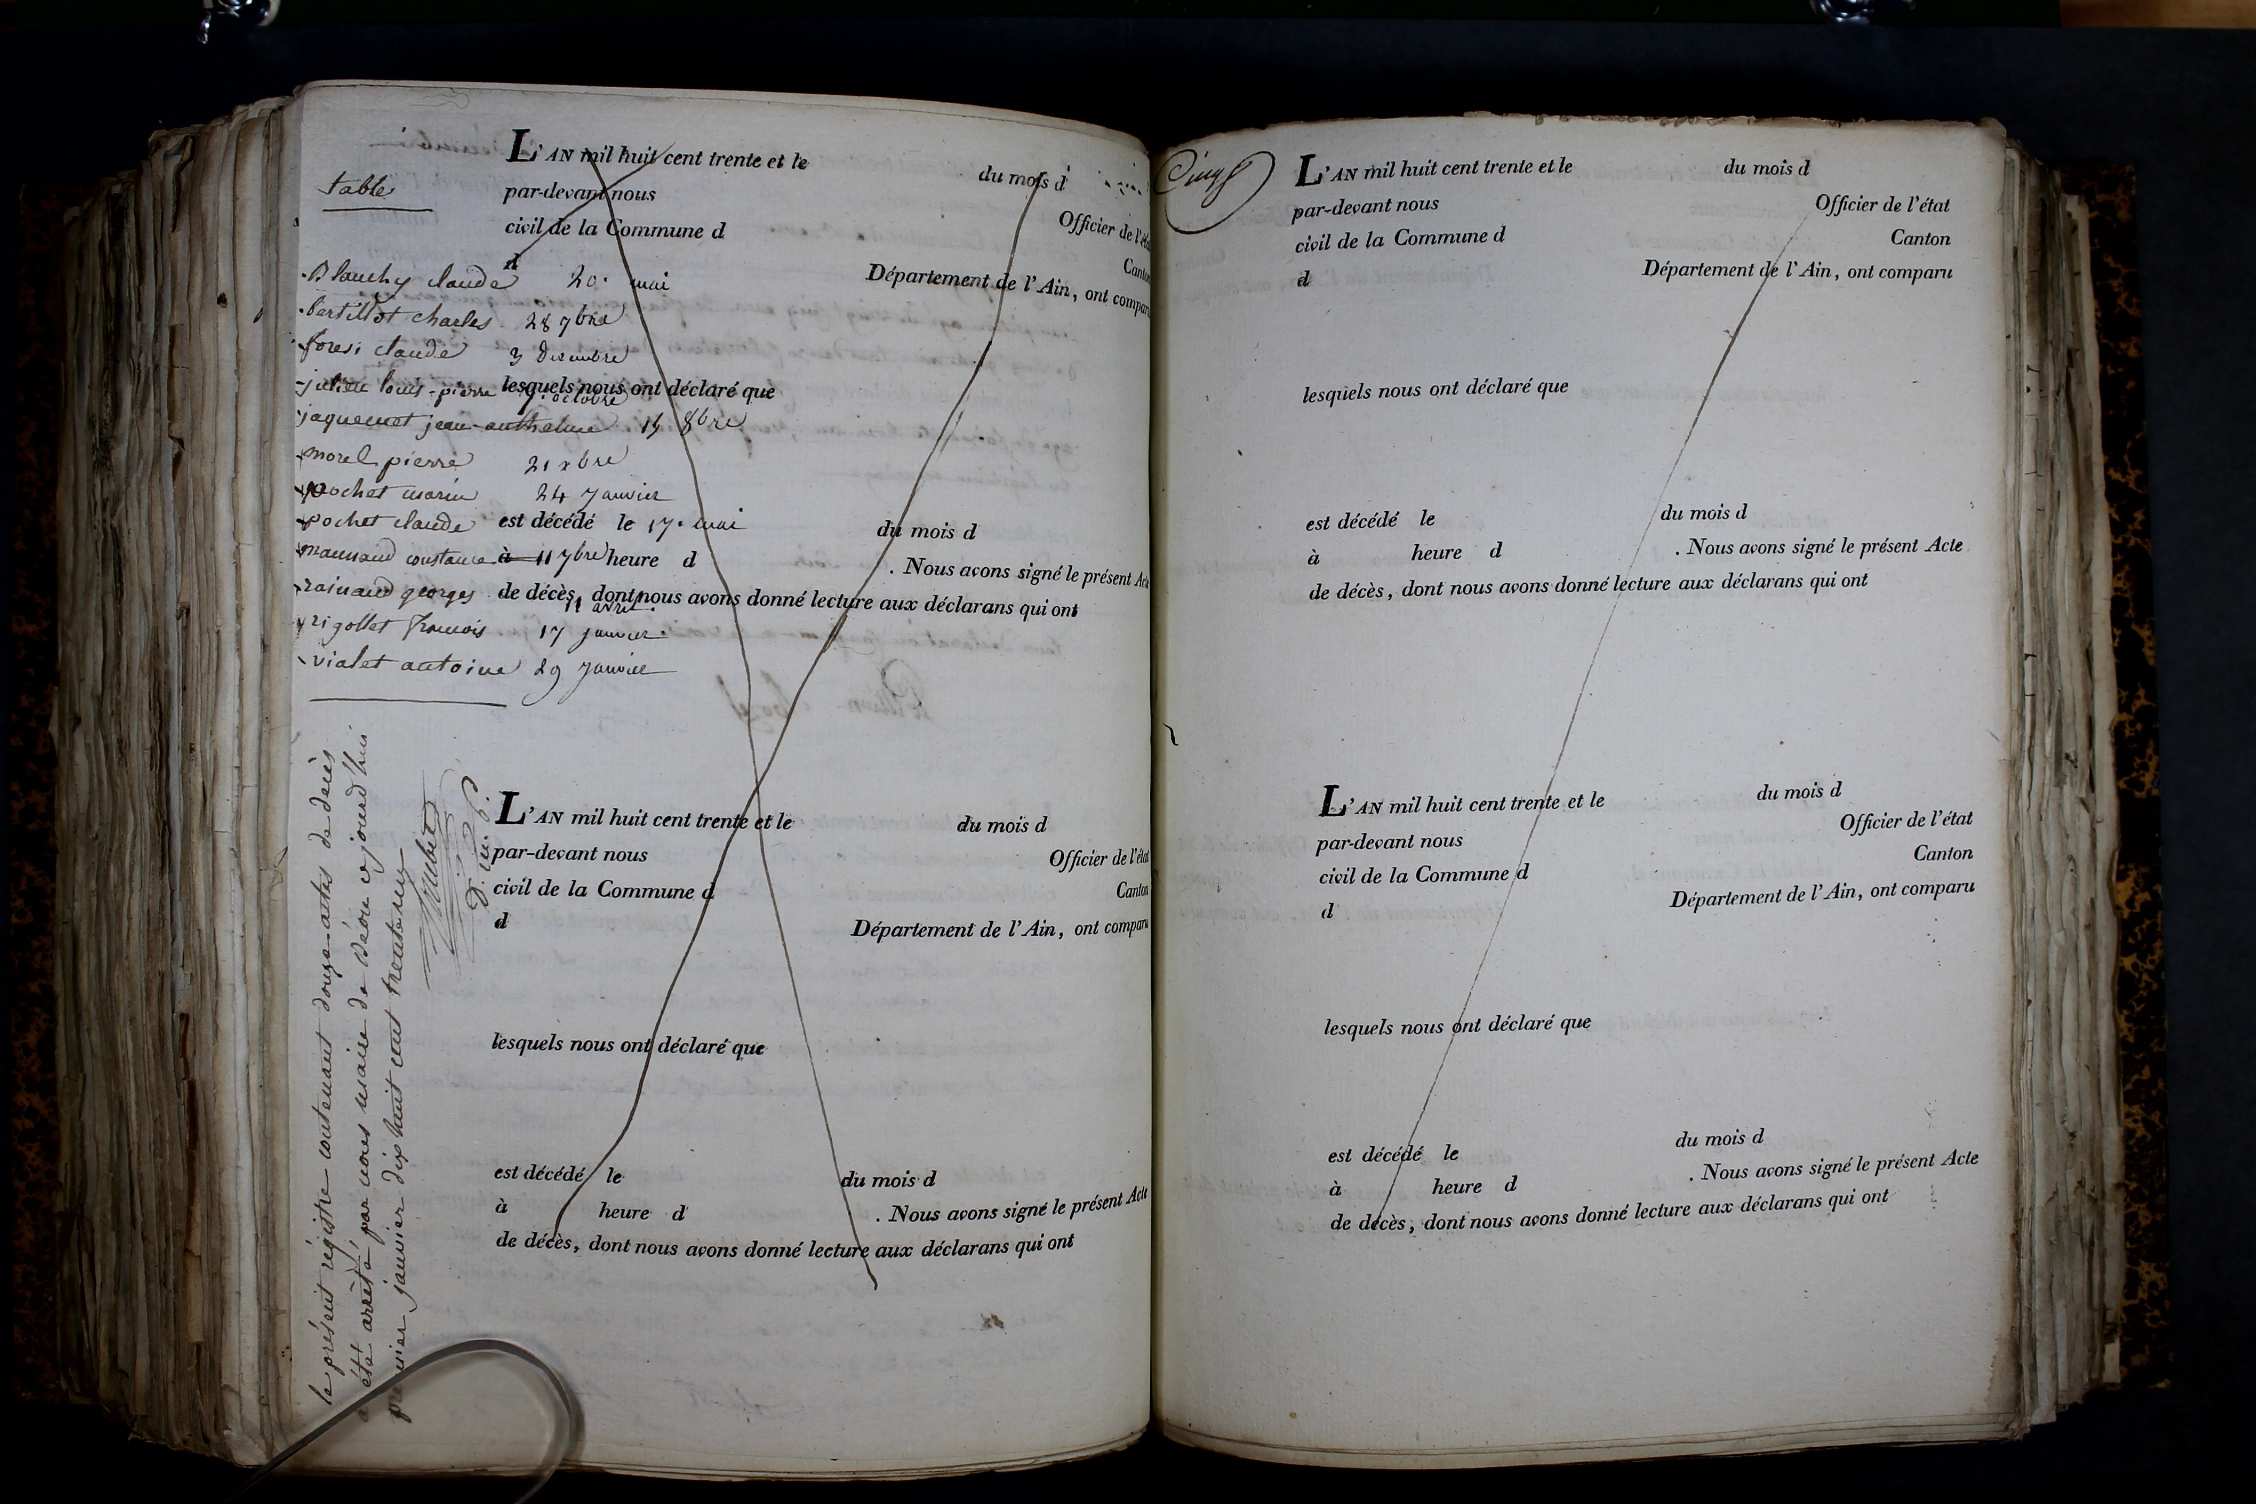 table
L'AN mil huit cent trente et le du mois d
par-devant nous Officier de l'état
civil de la Commune d Canton
d Département de l'Ain, ont comparu
Blanchy claude 20. mai
bertillot charles 28 7bre
foresi claude 3 decembre
julien louis-pierre 7. octobre
lesquels nous ont déclaré que
jaquemet jean-anthelme 15 8bre
morel pierre 21 xbre
pochet marin 24 Janvier
pochet claude 17. mai
est décédé le du mois d
constance 11 7bre
à heure d . Nous avons signé le présent Acte
rainaud georges 11 avril.
de décès, dont nous avons donné lecture aux déclarans qui ont
rigollet francois 17 janvier.
vialet antoine 29 Janvier
le présent régistre contenant douze actes de décès
a été arrêté par nous maire de ce jourd'hui
premier janvier dix huit cent trente un
L'AN mil huit cent trente et le du mois d
par-devant nous Officier de l'état
civil de la Commune d Canton
d Département de l'Ain, ont comparu
lesquels nous ont déclaré que
est décédé le du mois d
à heure d . Nous avons signé le présent Acte
de décès, dont nous avons donné lecture aux déclarans qui ont
Cinq
L'AN mil huit cent trente et le du mois d
par-devant nous Officier de l'état
civil de la Commune d Canton
d Département de l'Ain, ont comparu
lesquels nous ont déclaré que
est décédé le du mois d
à heure d . Nous avons signé le présent Acte
de décès, dont nous avons donné lecture aux déclarans qui ont
L'AN mil huit cent trente et le du mois d
par-devant nous Officier de l'état
civil de la Commune d Canton
d Département de l'Ain, ont comparu
lesquels nous ont déclaré que
est décédé le du mois d
à heure d . Nous avons signé le présent Acte
de décès, dont nous avons donné lecture aux déclarans qui ont